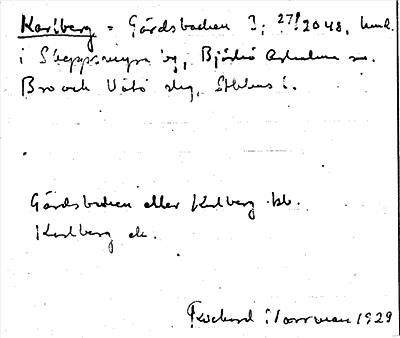 Karlberg = Gårdsbacken 3; 27/8 2048, hmd.
i Skeppsmyra by, Björkö Arholma sn.
Bro och Vätö slg, Sthlms l.
Gårdsbacken eller Karlberg bb.
Karlberg da.
Rickard Norrman 1929